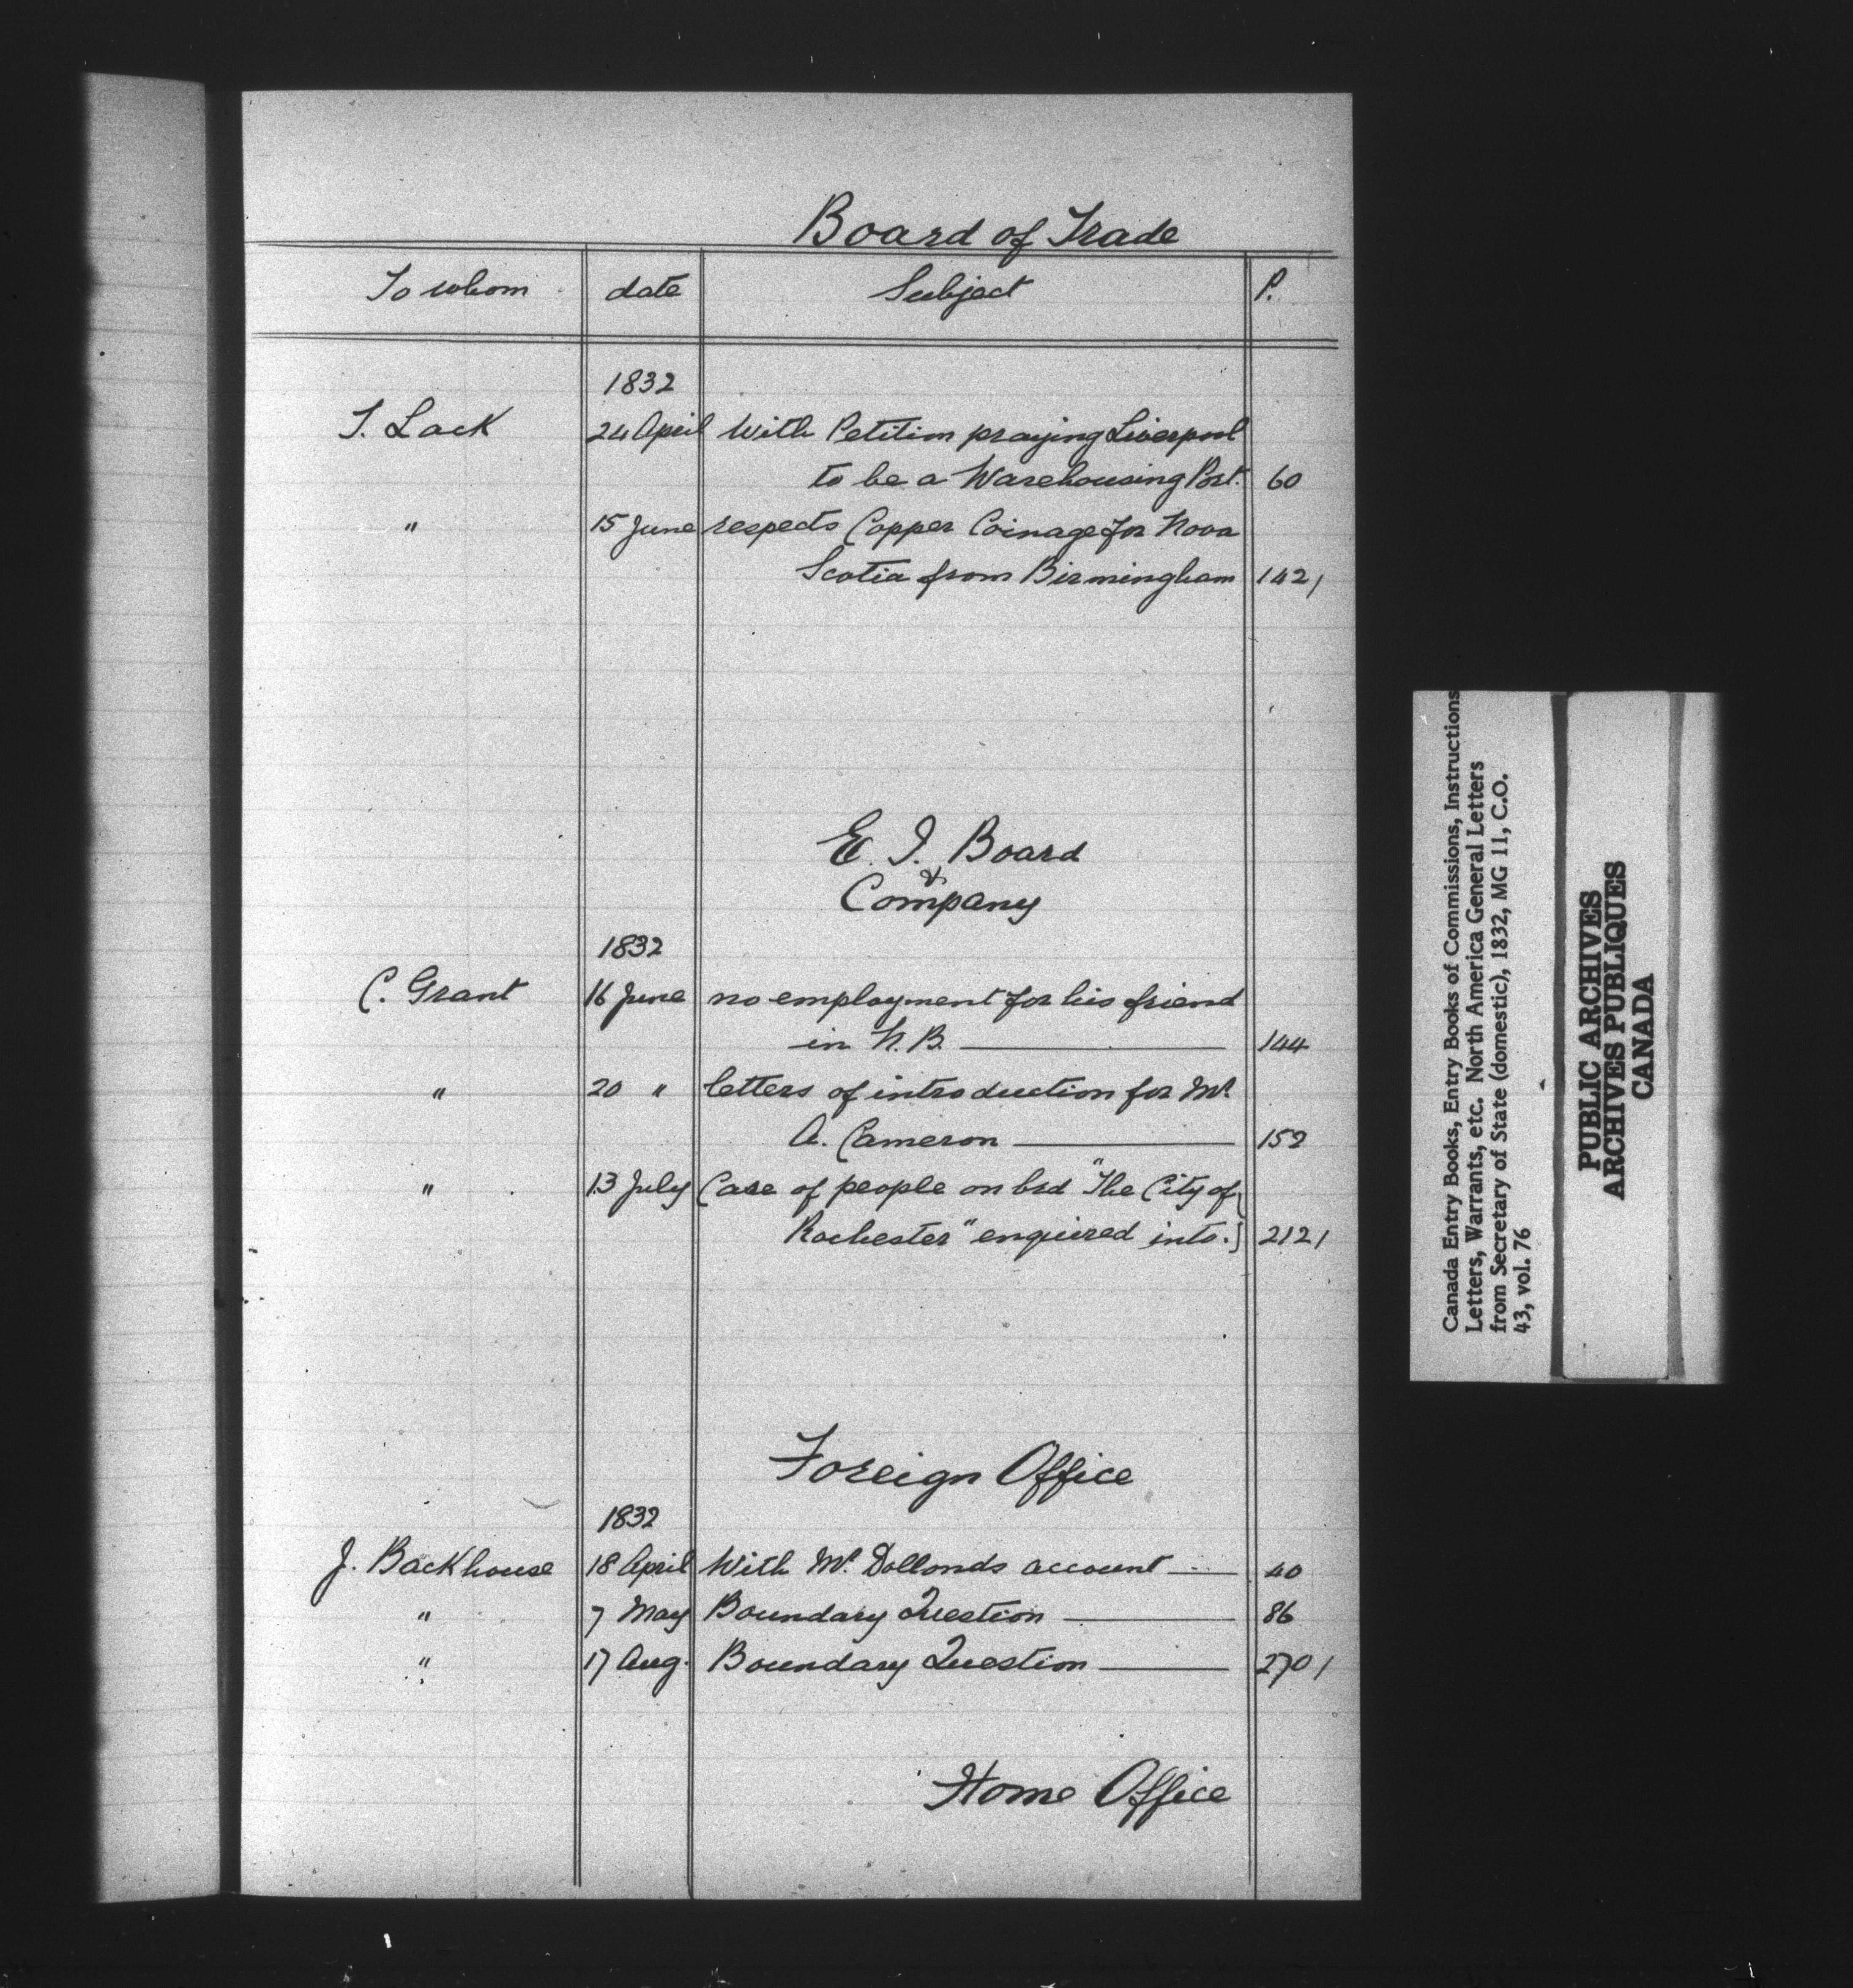 Board of Trade
To whom date Subject P.
1832
T. Lack 24 April With Petition praying Liverpool
to be a Warehousing Port. 60
" 15 June respects Copper Coinage for Nova
Scotia from Birmingham 142/
E. I. Board
&
Company
1832
C. Grant 16 June no employment for his friend
in N.B. 144
" 20 " letters of introduction for Mr.
A. Cameron 152
" 13 July Case of people on brd "The City of
Rochester" enquired into. 212/
Foreign Office
1832
J. Backhouse 18 April With Mr. Dollonds account 40
" 7 May Boundary Question 86
" 17 Aug. Boundary Question 270/
Home Office
Canada Entry Books, Entry Books of Commissions, Instructions
Letters, Warrants, etc. North America General Letters
from Secretary of State (domestic), 1832, MG 11, C.O.
43, vol. 76
PUBLIC ARCHIVES
ARCHIVES PUBLIQUES
CANADA